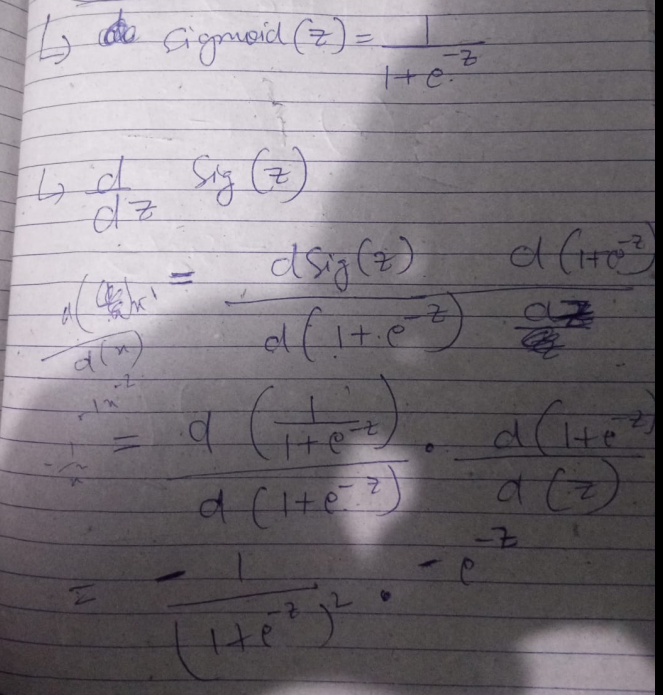 ↳ Sigmoid(z) = 1 / (1 + e^-z)
↳ d/dz Sig(z)
= dSig(z) / d(1+e^-z) d(1+e^-z) / dz
d(x)
-1x^-2
= d(1 / (1+e^-z)) / d(1+e^-z) · d(1+e^-z) / d(z)
= - 1 / (1+e^-z)^2 · -e^-z